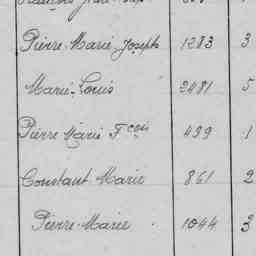 Pierre Marie Joseph 1283 3
Marie Louis 2481 5
Pierre Marie Fcois 499 1
Constant Marie 861 2
Pierre Marie 1044 3